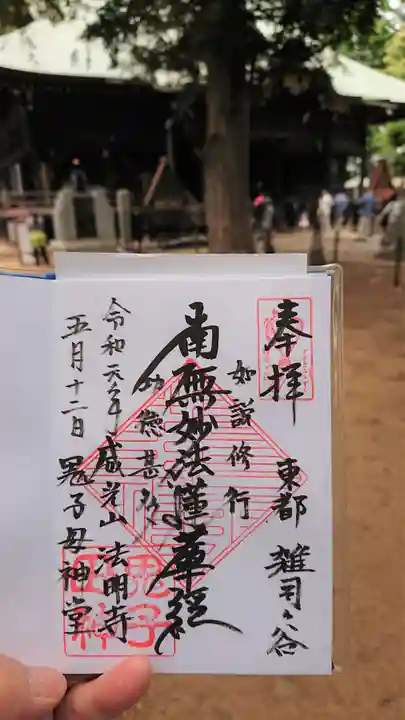 奉拝
東都 雑司ヶ谷
如説修行
南無妙法蓮華経
功徳甚多
令和元年 威光山 法明寺
五月十二日 鬼子母神堂